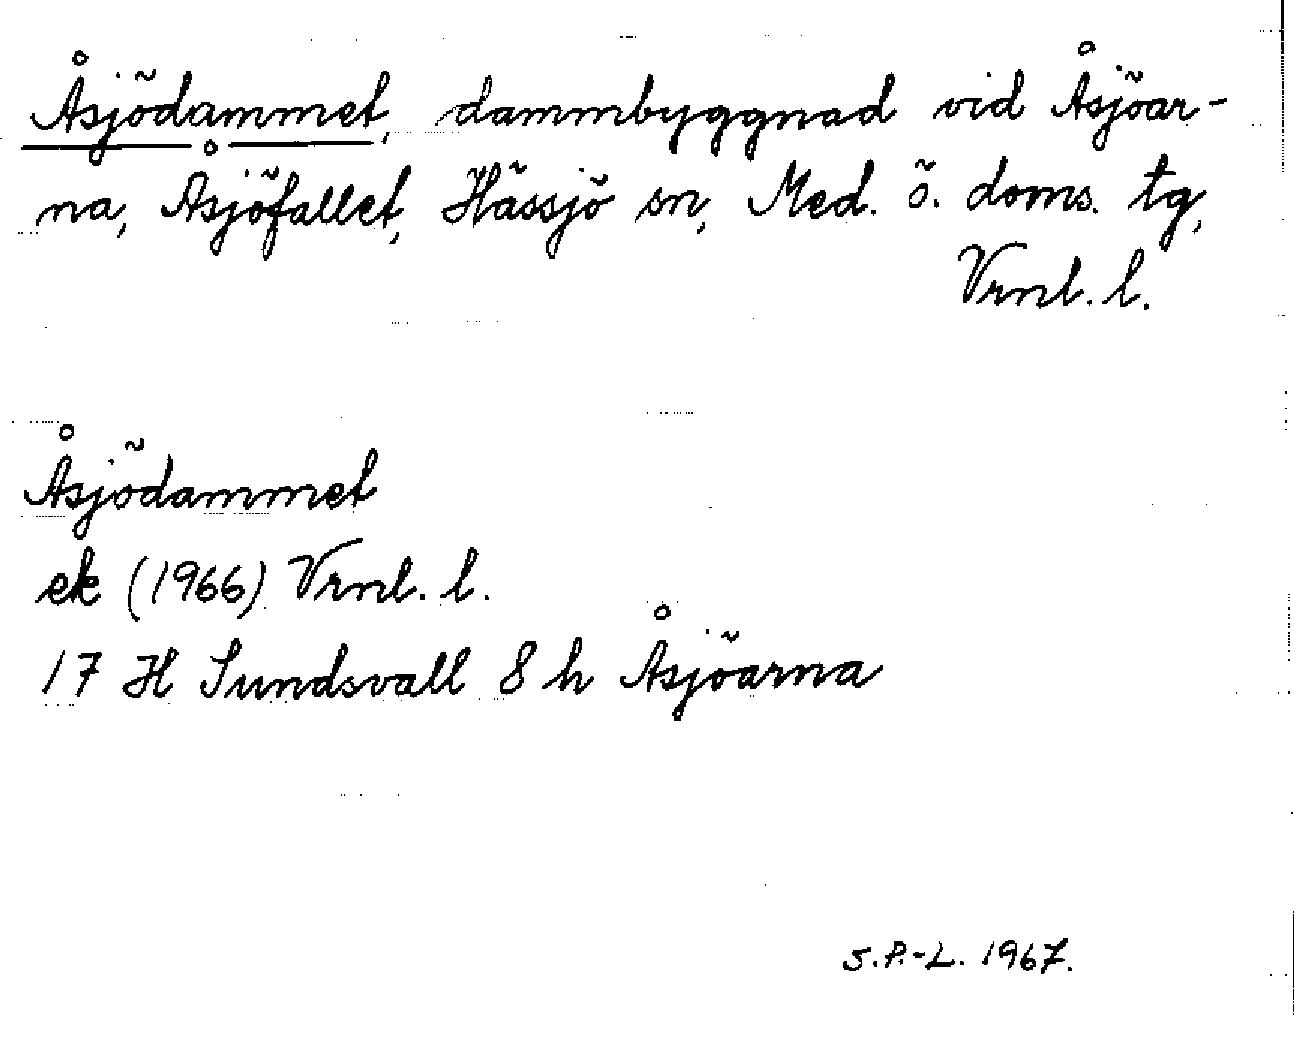 Åsjödammet, dammbyggnad vid Åsjöar-
na, Åsjöfallet, Hässjö sn, Med. ö. doms. tg,
Vrnl. l.
Åsjödammet
ek (1966) Vrnl. l.
17 H Sundsvall 8 h Åsjöarna
S.P.-L. 1967.